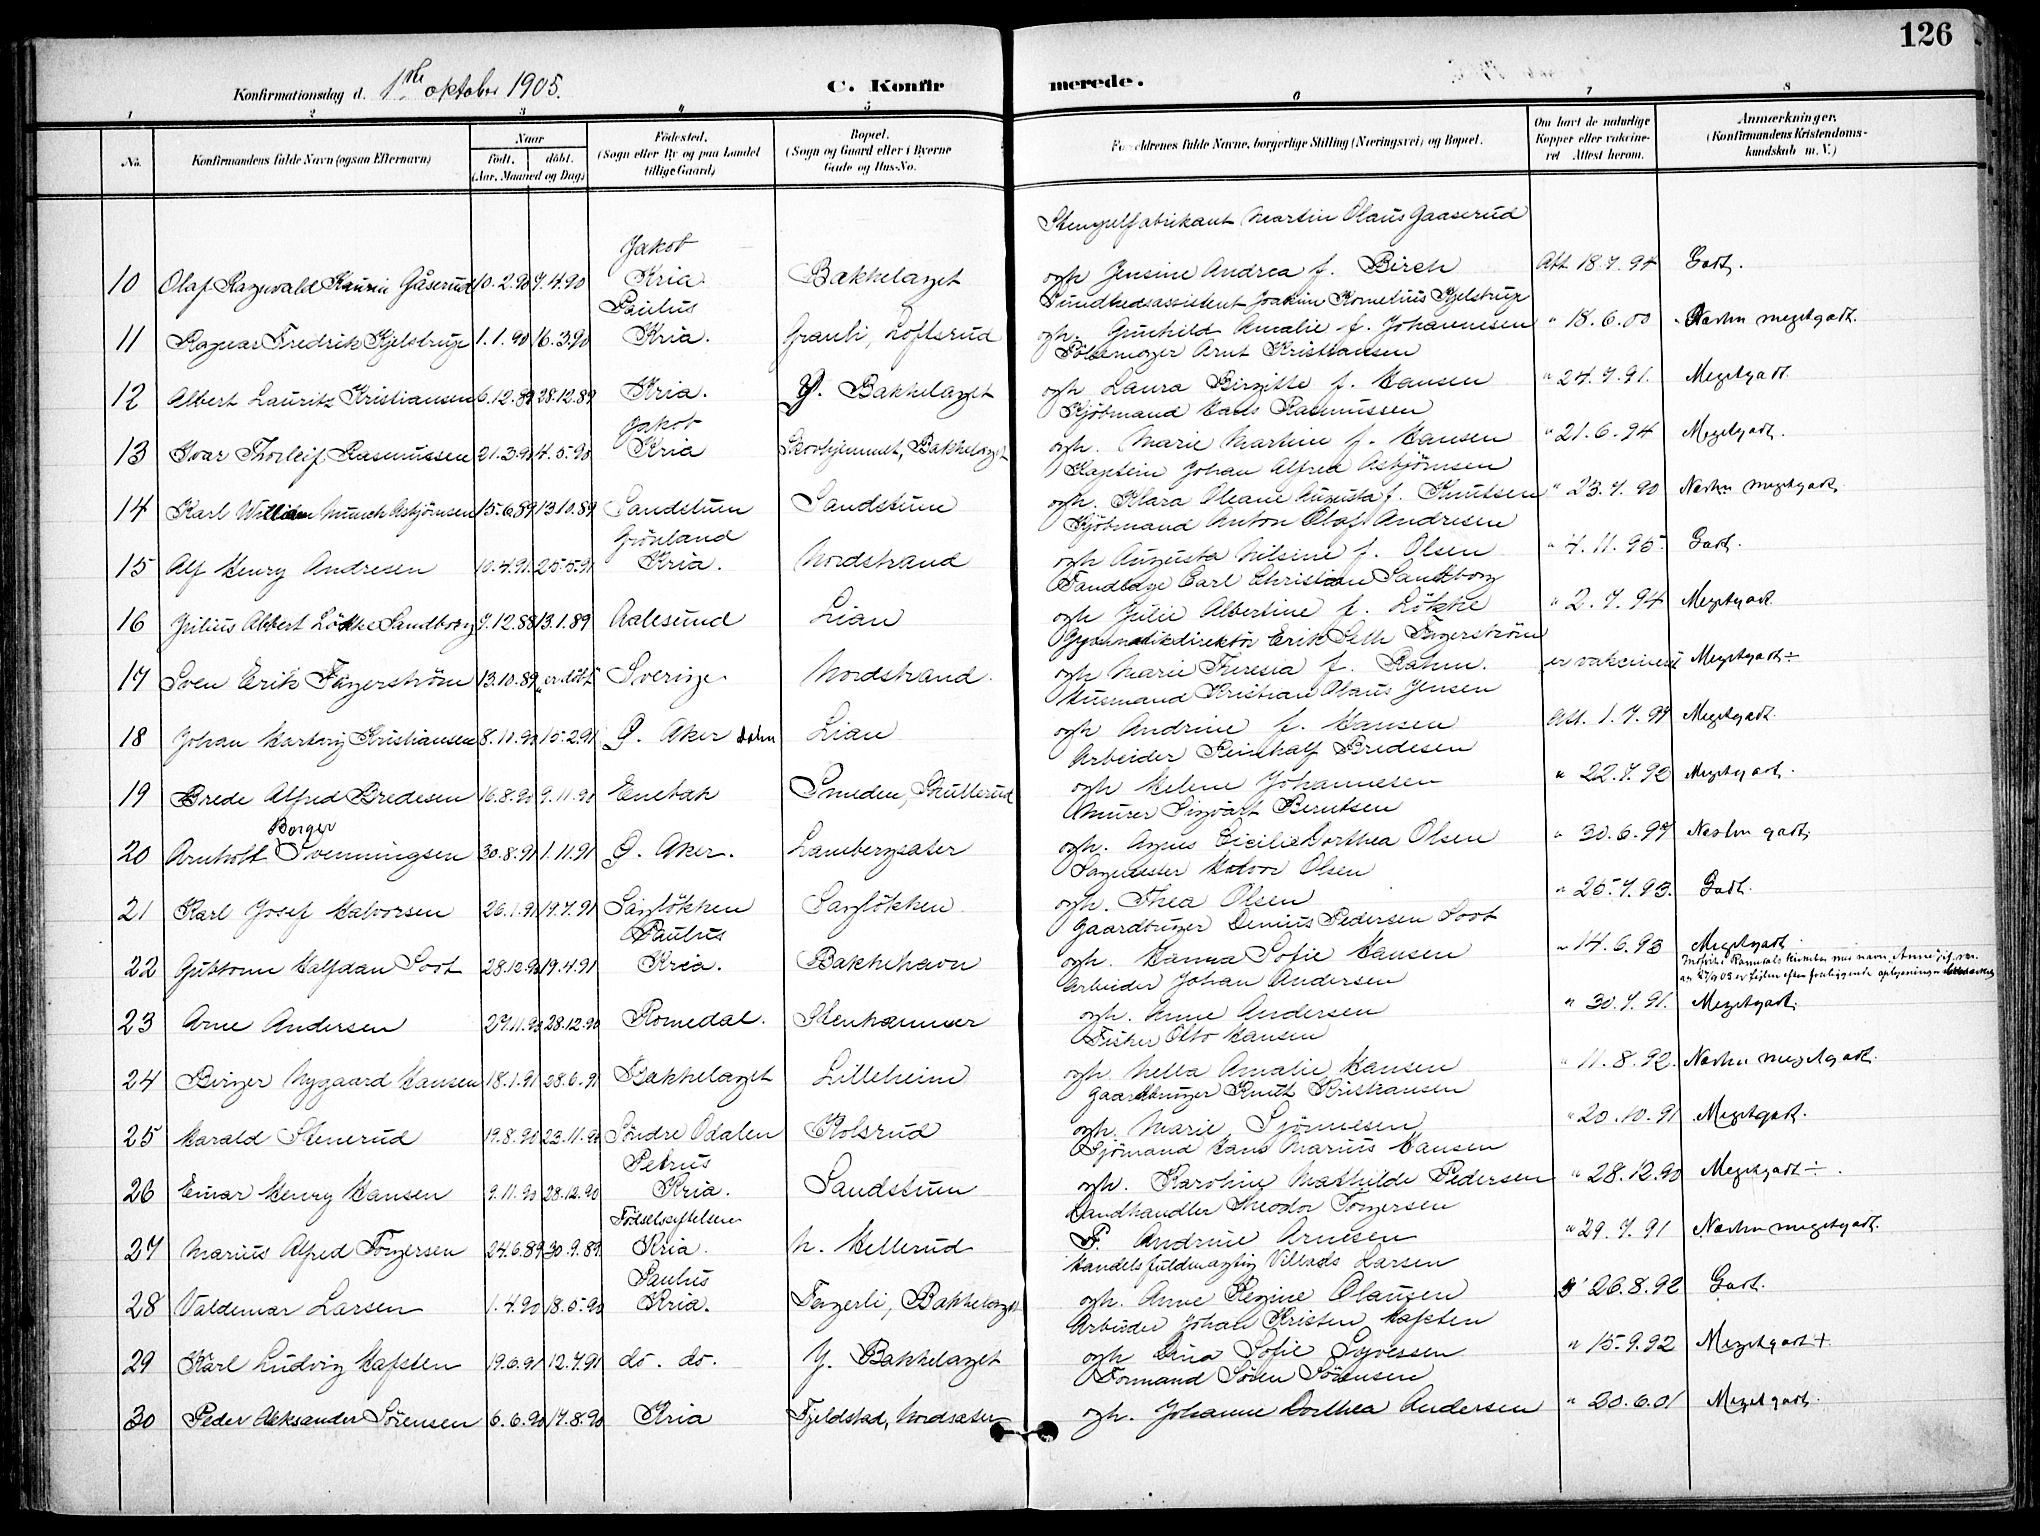 126
Konfirmationsdag d. 1ste oktober 1905. C. Konfirmerede.
1 2 3 4 5 6 7 8
No. Konfirmandens fulde Navn (ogsaa Efternavn) Naar født, døbt, (Aar, Maaned og Dag) Fødested. (Sogn eller By og paa Landet tillige Gaard) Bopæl. (Sogn og Gaard eller i Byerne Gade og Hus-No. Forældrenes fulde Navne, borgerlige Stilling (Næringsvei) og Bopæl. Om havt de naturlige Kopper eller vakcineret Attest herom. Anmærkninger. (Konfirmandens Kristendomskundskab m. V.)
Stempelfabrikant Martin Olaus Gaaserud
Jakob
10 Olaf Ragnvald Gåserud 10.2.90 7.4.90 Kria Bækkelaget ogh Jensine Andrea f. Birch Att 18.7.94 Godt.
Paulus Sundhedsassistent Joakim Kornelius Kjelstrup
11 Ragnar Fredrik Kjelstrup 1.1.90 16.3.90 Kria. Granli, Loftsrud ogh. Gunhild Amalie f. Johannesen " 18.6.00 Næsten megetgodt.
Pølsemager Arnt Kristiansen
12 Albert Lauritz Kristiansen 6.12.89 28.12.89 Kria. Y. Bækkelaget ogh Laura Birgitte f. Hansen " 24.7.91. Megetgodt.
Jakob Kjøbmand Hans Rasmussen
13 Ivar Thorleif Rasmussen 21.3.90 4.5.90 Kria Skovhjemmet, Bækkelaget ogh. Marie Martine f. Hansen " 21.6.94 Megetgodt.
Kaptein Johan Alfred Asbjørnsen
14 Karl William Munch Asbjørnsen 15.6.89 13.10.89 Sandstuen Sandstuen ogh. Klara Oleane Augusta f. Knutsen " 23.7.90 Næsten megetgodt.
Grønland Kjøbmand Anton Olaf Andresen
15 Alf Henry Andresen 10.4.91 25.5.91 Kria. Nordstrand ogh Augusta Nilsine f. Olsen " 4.11.95. Godt.
Tandlæge Carl Christian Sandborg
16 Julius Albert Løkke Sandborg 7.12.88 13.1.89 Aalesund Lian ogh Julie Albertine f. Løkke " 2.7.94 Megetgodt.
Gymnastikdirektør Erik Seth Fagerstrøm
17 Sven Erik Fagerstrøm 13.10.89 er døbt Sverige Nordstrand. ogh Marie Theresia f. Rahm. er vakcineret Megetgodt ÷
Husmand Kristian Olaus Jensen
18 Johan Hartvig Kristiansen 8.11.90 15.2.91 Ø. Aker Lian ogh Andrine f. Hansen Att. 1.7.97 Megetgodt.
Arbeider Reinhalf Bredesen
19 Brede Alfred Bredesen 16.8.90 9.11.90 Enebak Smeden, Skullerud ogh Helene Johannesen " 22.7.93 Megetgodt.
Borger Murer Sigvart Berntsen
20 Arnholt Svenningsen 30.8.91 1.11.91 Ø. Aker. Lambergsæter ogh. Agnes Cicilie Dorthea Olsen " 30.6.97 Næsten godt.
Sagmester Halvor Olsen
21 Karl Josef Halvorsen 26.1.91 19.7.91 Sagløkken Sagløkken ogh. Thea Olsen " 25.7.93. Godt.
Paulus Gaardbruger Denius Pedersen Soot
22 Guttorm Halfdan Soot 28.12.90 19.4.91 Kria. Bækkehavn ogh. Hanna Sofie Hansen " 14.6.93 Megetgodt.
Arbeider Johan Andersen
23 Arne Andersen 29.11.90 28.12.90 Romedal. Stenhammer ogh. Anne Andersen " 30.7.91. Megetgodt.
Fisker Otto Hansen
24 Birger Nygaard Hansen 18.1.91 28.6.91 Bækkelaget Lilleheim ogh. Mella Amalie Hansen " 11.8.92. Næsten megetgodt.
Gaardbruger Knut Kristiansen
25 Harald Stenerud 19.8.90 23.11.90 Søndre Odalen Rolsrud ogh. Marie Sjønnesen " 20.10.91 Megetgodt.
Petrus Sjømand Hans Marius Hansen
26 Einar Henry Hansen 9.11.90 28.12.90 Kria. Sandstuen ogh. Karoline Mathilde Pedersen " 28.12.90 Megetgodt ÷.
Fødselsstiftelsen Landhandler Theodor Torgersen
27 Marius Alfred Torgersen 24.6.89 30.9.89 Kria. N. Hellerud P. Andrine Arnesen " 29.7.91 Næsten megetgodt.
Paulus Handelsfuldmægtig Villads Larsen
28 Valdemar Larsen 1.4.90 18.5.90 Kria. Fagerli, Bækkelaget ogh. Anne Regine Olausen " 26.8.92 Godt.
Arbeider Johan Kristen Hafsten
29 Karl Ludvig Hafsten 19.6.91 12.7.91 do. do. Y. Bækkelaget ogh Dina Sofie Syvessen " 15.9.92 Megetgodt +
Formand Søren Sørensen
30 Peder Aleksander Sørensen 6.6.90 17.8.90 Kria Fjeldstad, Nordsæter ogh. Johanne Dorthea Andersen " 20.6.01 Megetgodt.